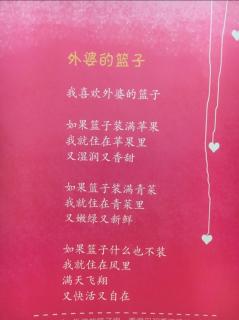 外婆的篮子
我喜欢外婆的篮子
如果篮子装满苹果
我就住在苹果里
又湿润又香甜
如果篮子装满青菜
我就住在青菜里
又嫩绿又新鲜
如果篮子什么也不装
我就住在风里
满天飞翔
又快活又自在